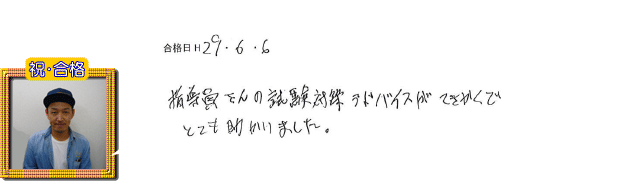 合格日 H29.6.6
祝・合格
指導員さんの試験対策アドバイスがてきかくで
とても助かりました。